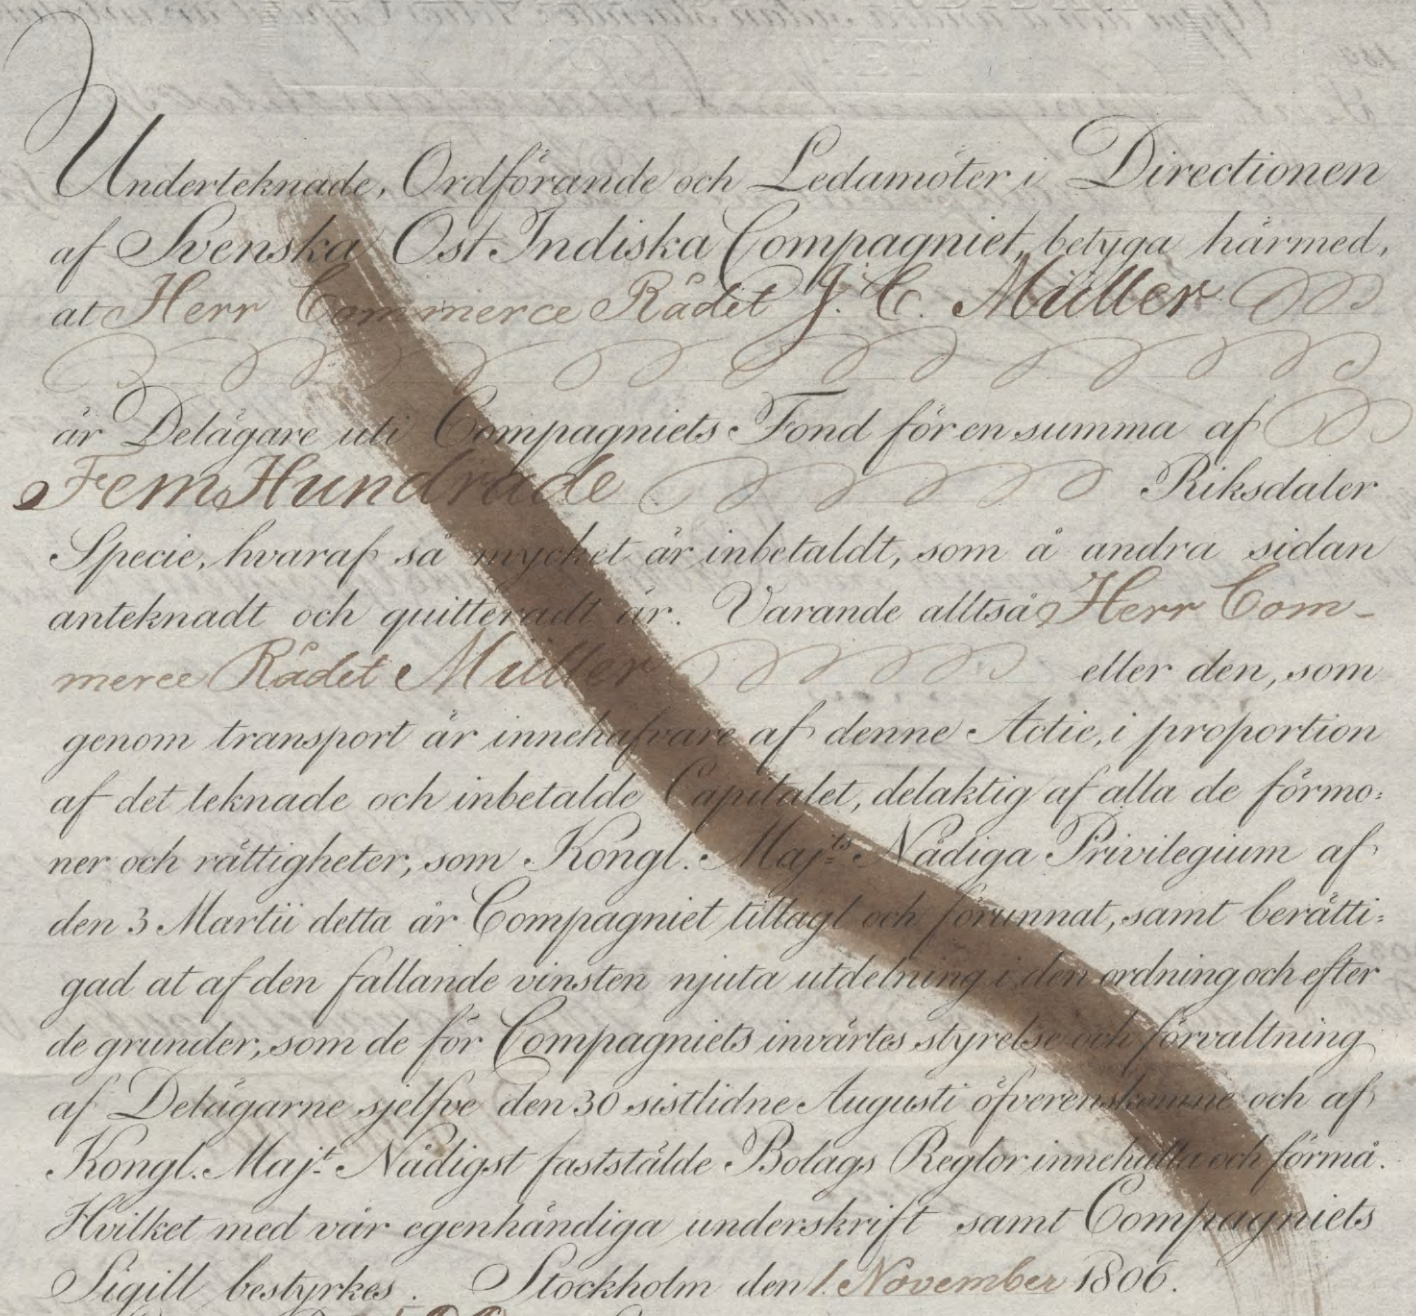 Underteknade, Ordförande och Ledamöter i Directionen
af Svenska Ost Indiska Compagniet, betyga härmed,
at Herr Commerce Rådet J. C. Müller
är Delägare uti Compagniets Fond för en summa af
Fem Hundrade Riksdaler
Specie, hvaraf så mycket är inbetaldt, som å andra sidan
anteknadt och quitteradt är. Varande alltså Herr Com-
merce Rådet Müller eller den, som
genom transport är innehafvare af denne Actie, i proportion
af det teknade och inbetalde Capitalet, delaktig af alla de förmo:
ner och rättigheter, som Kongl. Maj:ts Nådiga Privilegium af
den 3 Martii detta år Compagniet tillagt och förunnat, samt berätti:
gad at af den fallande vinsten njuta utdelning i den ordning och efter
de grunder, som de för Compagniets invärtes styrelse och förvaltning
af Delägarne sjelfve den 30 sistlidne Augusti öfverenskomne och af
Kongl. Maj:t Nådigst faststälde Bolags Reglor innehålla och förmå.
Hvilket med vår egenhändiga underskrift samt Compagniets
Sigill bestyrkes. Stockholm den 1. November 1806.